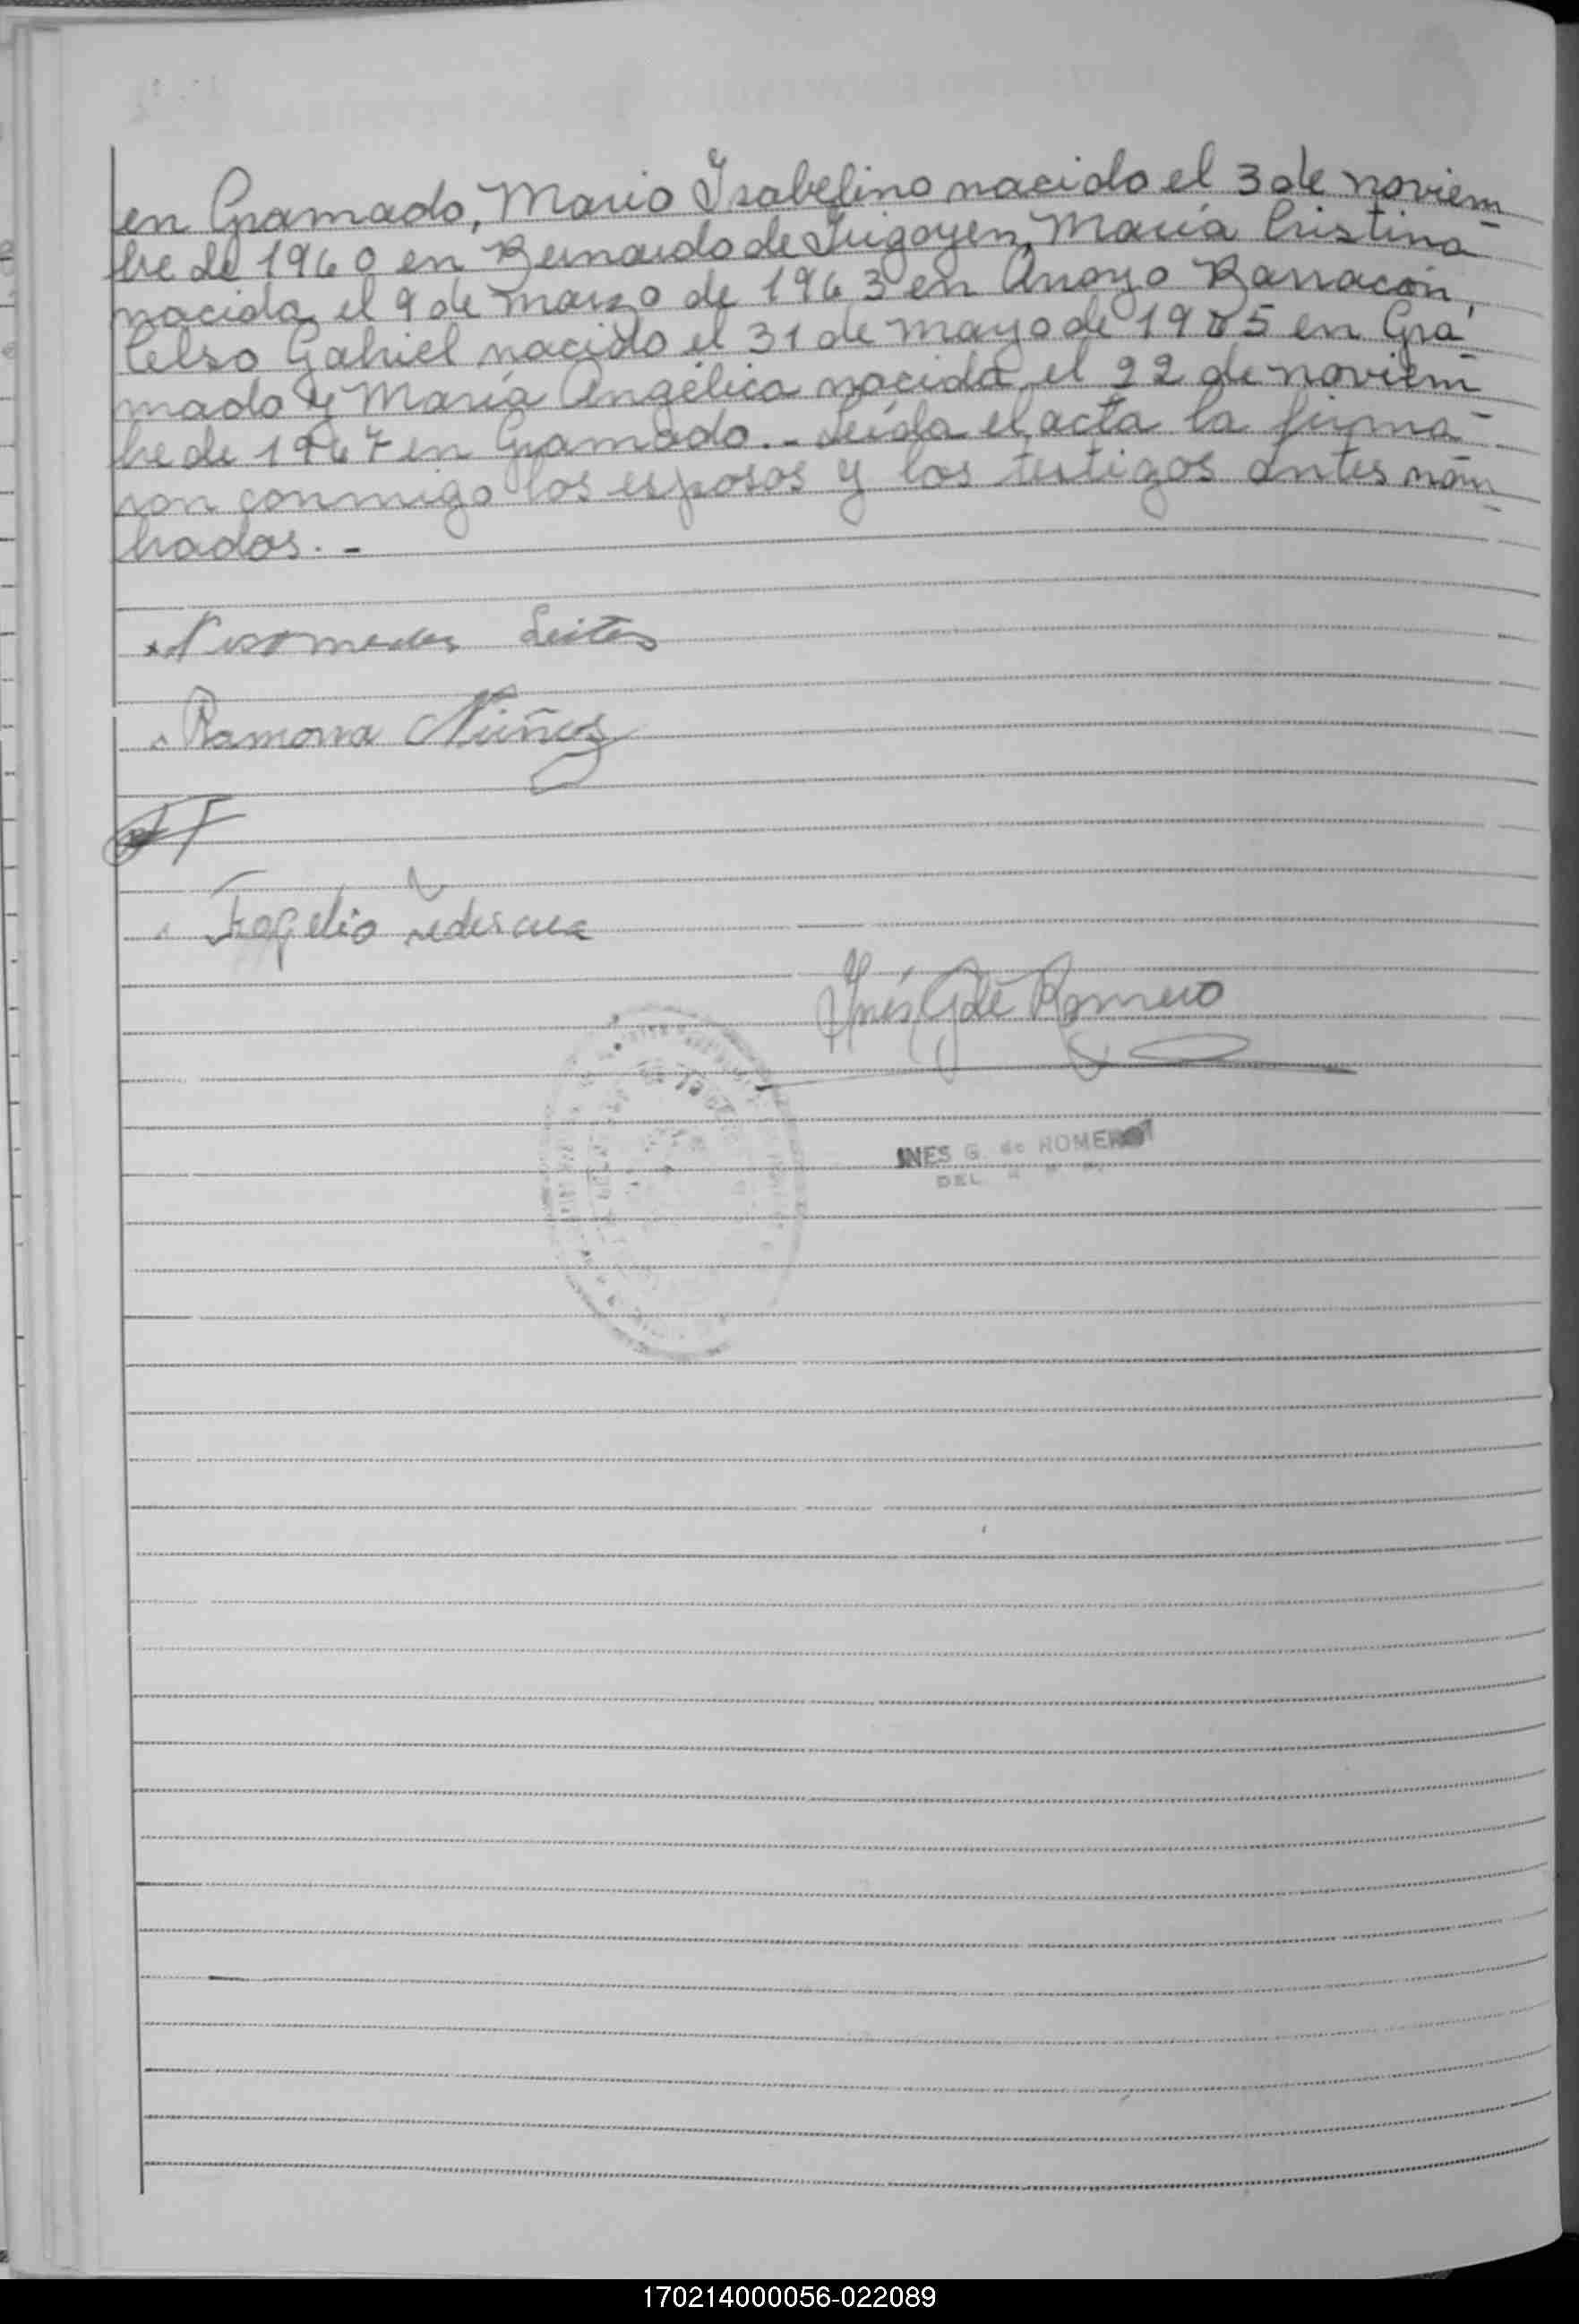 en Gramado, Mario Isabelino nacido el 3 de noviem
bre de 1960 en Bernardo de Irigoyen, María Cristina
nacida el 9 de marzo de 1963 en Arroyo Barracón,
Celso Gabriel nacido el 31 de mayo de 1965 en Gra
mado y María Angélica nacida el 22 de noviem
bre de 1967 en Gramado.- Leída el acta la firma
ron conmigo los esposos y los testigos antes nom
brados.-
Leites
Ramona Núñez
Inés G de Romero
INES G. de ROMERO
DEL
170214000056-022089